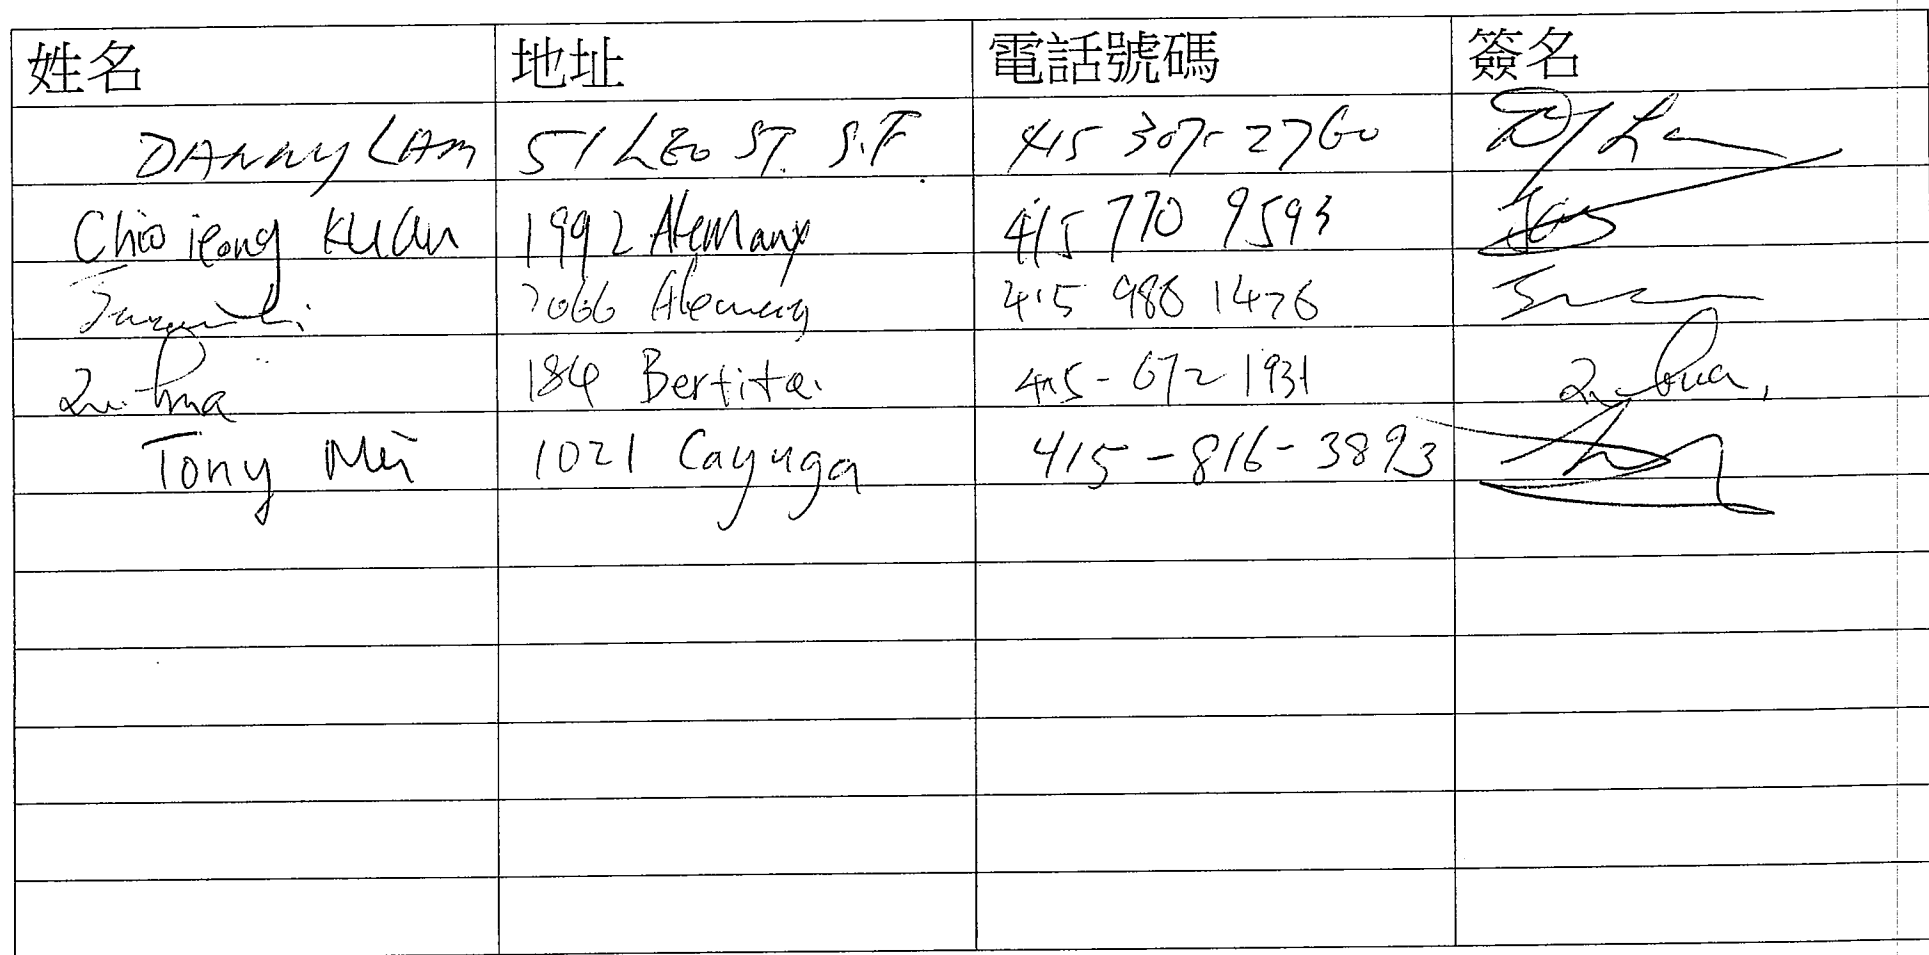 姓名 地址 電話號碼 簽名
DANNY LAM 51 LEO ST. S.F 415 307-2760
Chio ieong KUAN 1992 Alemany 415 770 9593
Alemany 415 980 1476
184 Bertita. 415-672 1931
Tony Mei 1021 Cayuga 415-816-3893